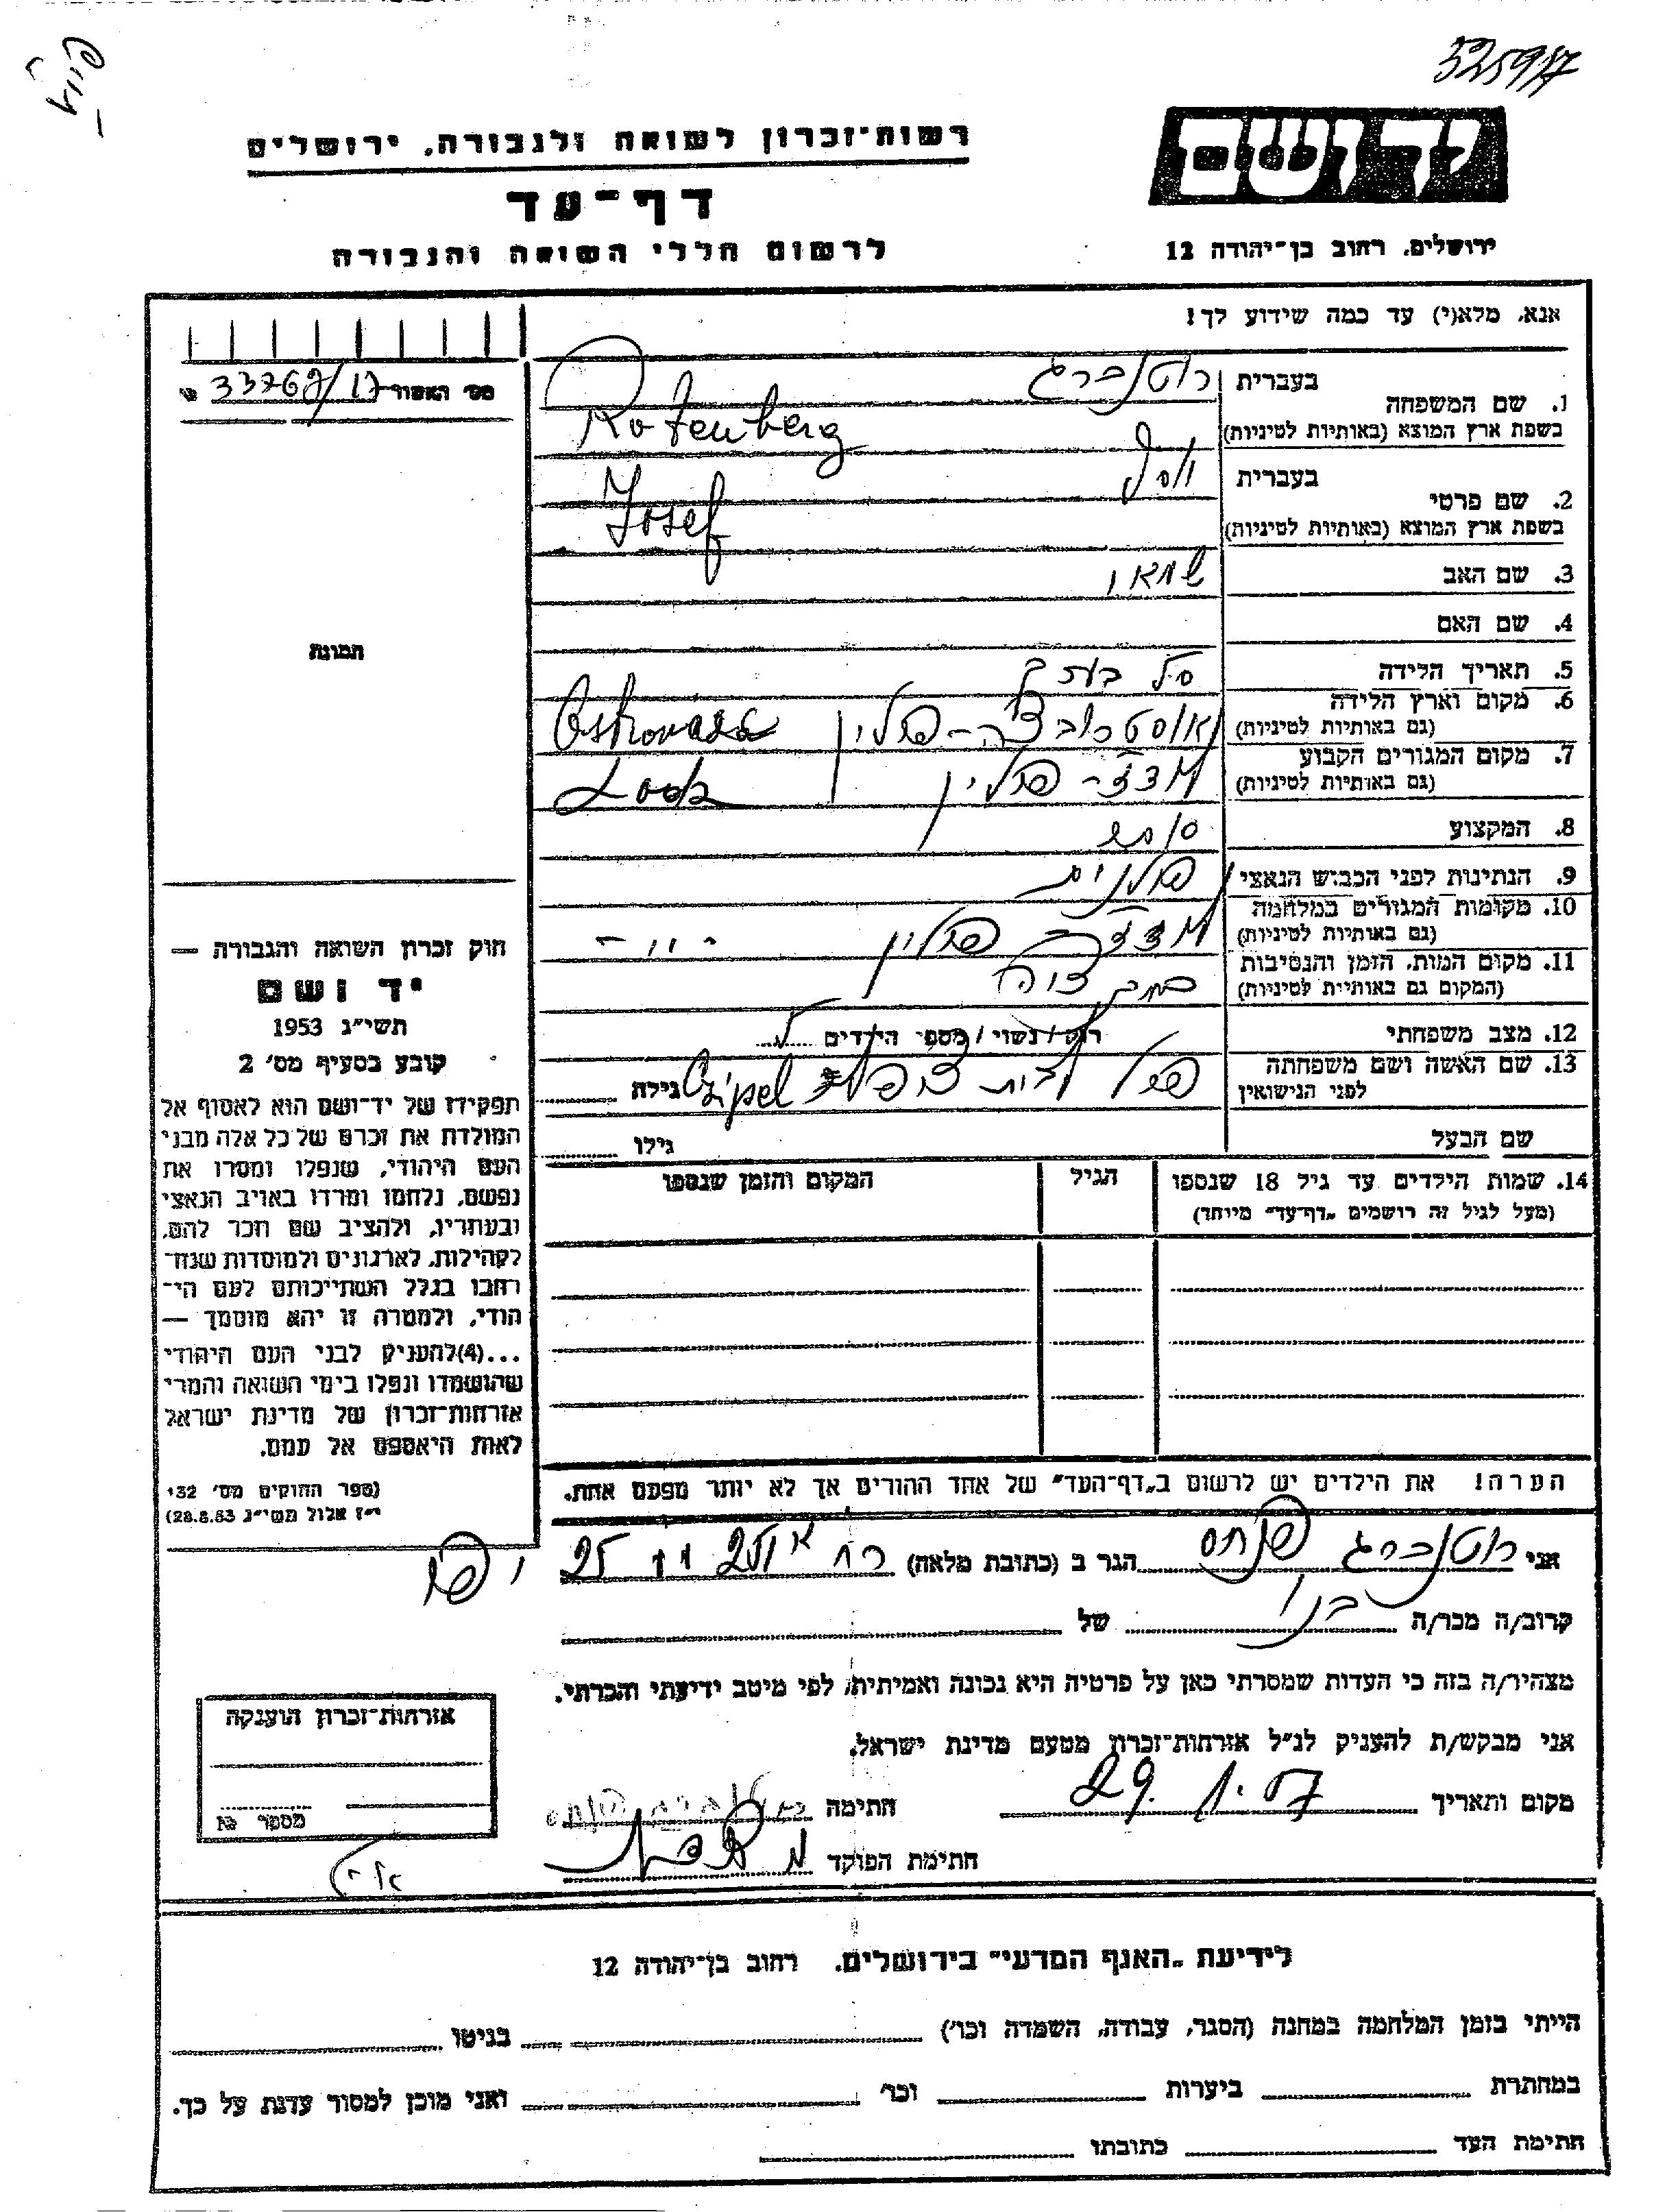 325917
יד ושם
רשות־זכרון לשואה ולגבורה. ירושלים
דף־עד
לרשום חללי השואה והגבורה
ירושלים. רחוב בן־יהודה 12
אנא, מלא(י) עד כמה שידוע לך!
מס׳ האשור 17/
1. שם המשפחה
בעברית רוטנברג
(בשפת ארץ המוצא (באותיות לטיניות Rotenberg
2. שם פרטי
בעברית יוסף
(בשפת ארץ המוצא (באותיות לטיניות Josef
3. שם האב
4. שם האם
תמונה
5. תאריך הלידה
6. מקום וארץ הלידה
(גם באותיות לטיניות) פולין
7. מקום המגורים הקבוע
(גם באותיות לטיניות) לודז׳ - פולין
8. המקצוע סוחר
9. הנתינות לפני הכבוש הנאצי פולנית
10. מקומות המגורים במלחמה
(גם באותיות לטיניות) לודז׳ - פולין - " -
11. מקום המות, הזמן והנסיבות
(המקום גם באותיות לטיניות)
12. מצב משפחתי רוק / נשוי / מספר הילדים
13. שם האשה ושם משפחתה
לפני הנישואין Czipel גילה
שם הבעל גילו
14. שמות הילדים עד גיל 18 שנספו
(מעל לגיל זה רושמים „דף־עד" מיוחד)
הגיל
המקום והזמן שנספו
חוק זכרון השואה והגבורה —
יד ושם
תשי״ג 1953
קובע בסעיף מס׳ 2
תפקידו של יד־ושם הוא לאסוף אל
המולדת את זכרם של כל אלה מבני
העם היהודי, שנפלו ומסרו את
נפשם, נלחמו ומרדו באויב הנאצי
ובעוזריו, ולהציב שם וזכר להם,
לקהילות, לארגונים ולמוסדות שנח־
רבו בגלל השתייכותם לעם הי־
הודי, ולמטרה זו יהא מוסמך —
...(4)להעניק לבני העם היהודי
שהושמדו ונפלו בימי השואה והמרי
אזרחות־זכרון של מדינת ישראל
לאות היאספם אל עמם.
(ספר החוקים מס׳ 132
י״ז אלול תשי״ג 28.8.53)
הערה! את הילדים יש לרשום ב„דף־העד" של אחד ההורים אך לא יותר מפעם אחת.
אני רוטנברג פנחס הגר ב (כתובת מלאה) רח 25 יפו
קרוב/ה מכר/ה בנו של
מצהיר/ה בזה כי העדות שמסרתי כאן על פרטיה היא נכונה ואמיתית, לפי מיטב ידיעתי והכרתי.
אני מבקש/ת להעניק לנ״ל אזרחות־זכרון מטעם מדינת ישראל.
מקום ותאריך חתימה רוטנברג פנחס
חתימת הפוקד
אזרחות־זכרון הוענקה
מספר №
לידיעת „האגף המדעי" בירושלים. רחוב בן־יהודה 12
הייתי בזמן המלחמה במחנה (הסגר, עבודה, השמדה וכו׳) בגיטו
במחתרת ביערות וכו׳ ואני מוכן למסור עדות על כך.
חתימת העד כתובתו